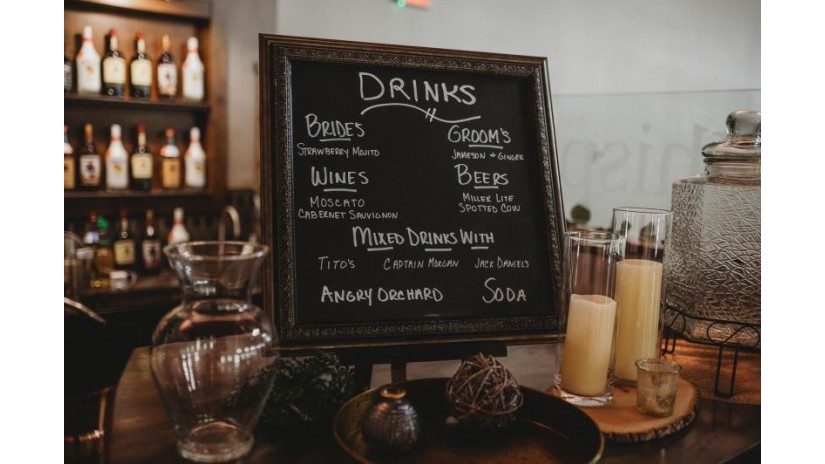 DRINKS
BRIDE'S
STRAWBERRY MOJITO
GROOM'S
JAMESON + GINGER
WINES
MOSCATO
CABERNET SAUVIGNON
BEERS
MILLER LITE
SPOTTED COW
MIXED DRINKS WITH
TITO'S CAPTAIN MORGAN JACK DANIEL'S
ANGRY ORCHARD SODA